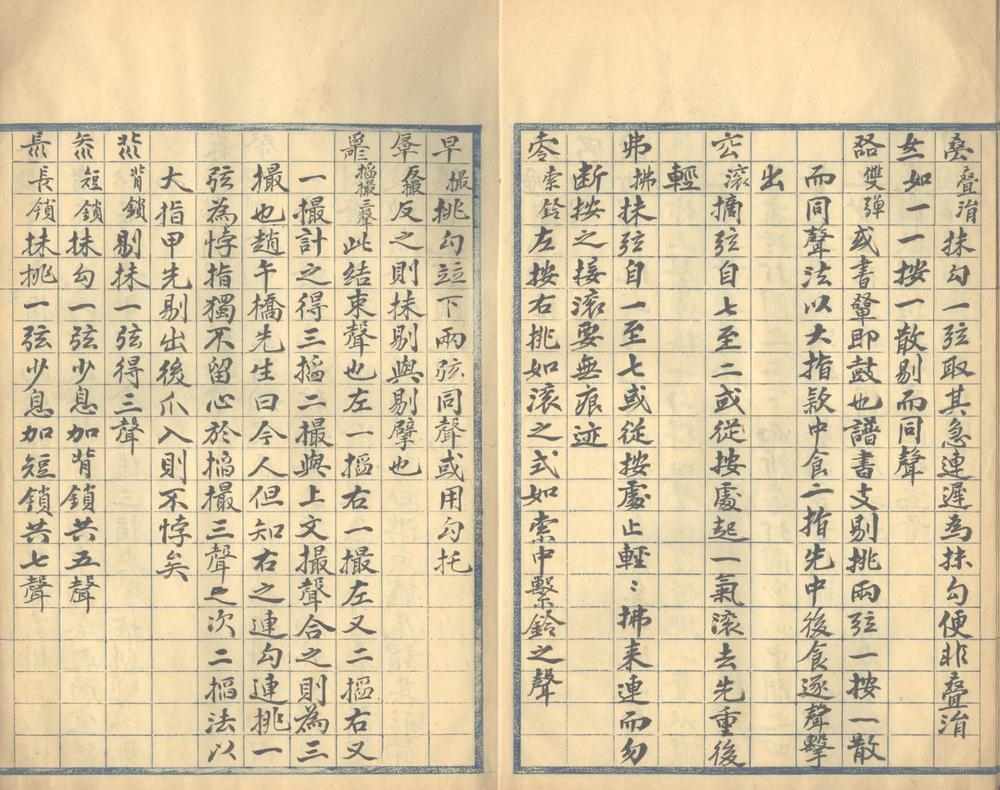 疊涓抹勾一弦取其急連遲為抹勾便非疊涓
如一一按一散剔而同聲
雙彈或書鼜即鼓也譜書支剔挑兩弦一按一散
而同聲法以大指欵中食二指先中後食逐聲擊
出
滚摘弦自七至二或從按處起一氣滚去先重後
輕
弗拂抹弦自一至七或從按處止輕〻拂来連而勿
断按之接滚要無痕迹
索鈴左按右挑如滚之式如索中繫鈴之聲
早撮挑勾竝下兩弦同聲或用勾托
反撮反之則抹剔與剔擘也
搯撮三聲此結束聲也左一搯右一撮左又二搯右又
一撮計之得三搯二撮與上文撮聲合之則為三
撮也趙午橋先生曰今人但知右之連勾連挑一
弦為悖指獨不留心於搯撮三聲之次二搯法以
大指甲先剔出後爪入則不悖矣
背鎖剔抹一弦得三聲
短鎖抹勾一弦少息加背鎖共五聲
長鎖抹挑一弦少息加短鎖共七聲